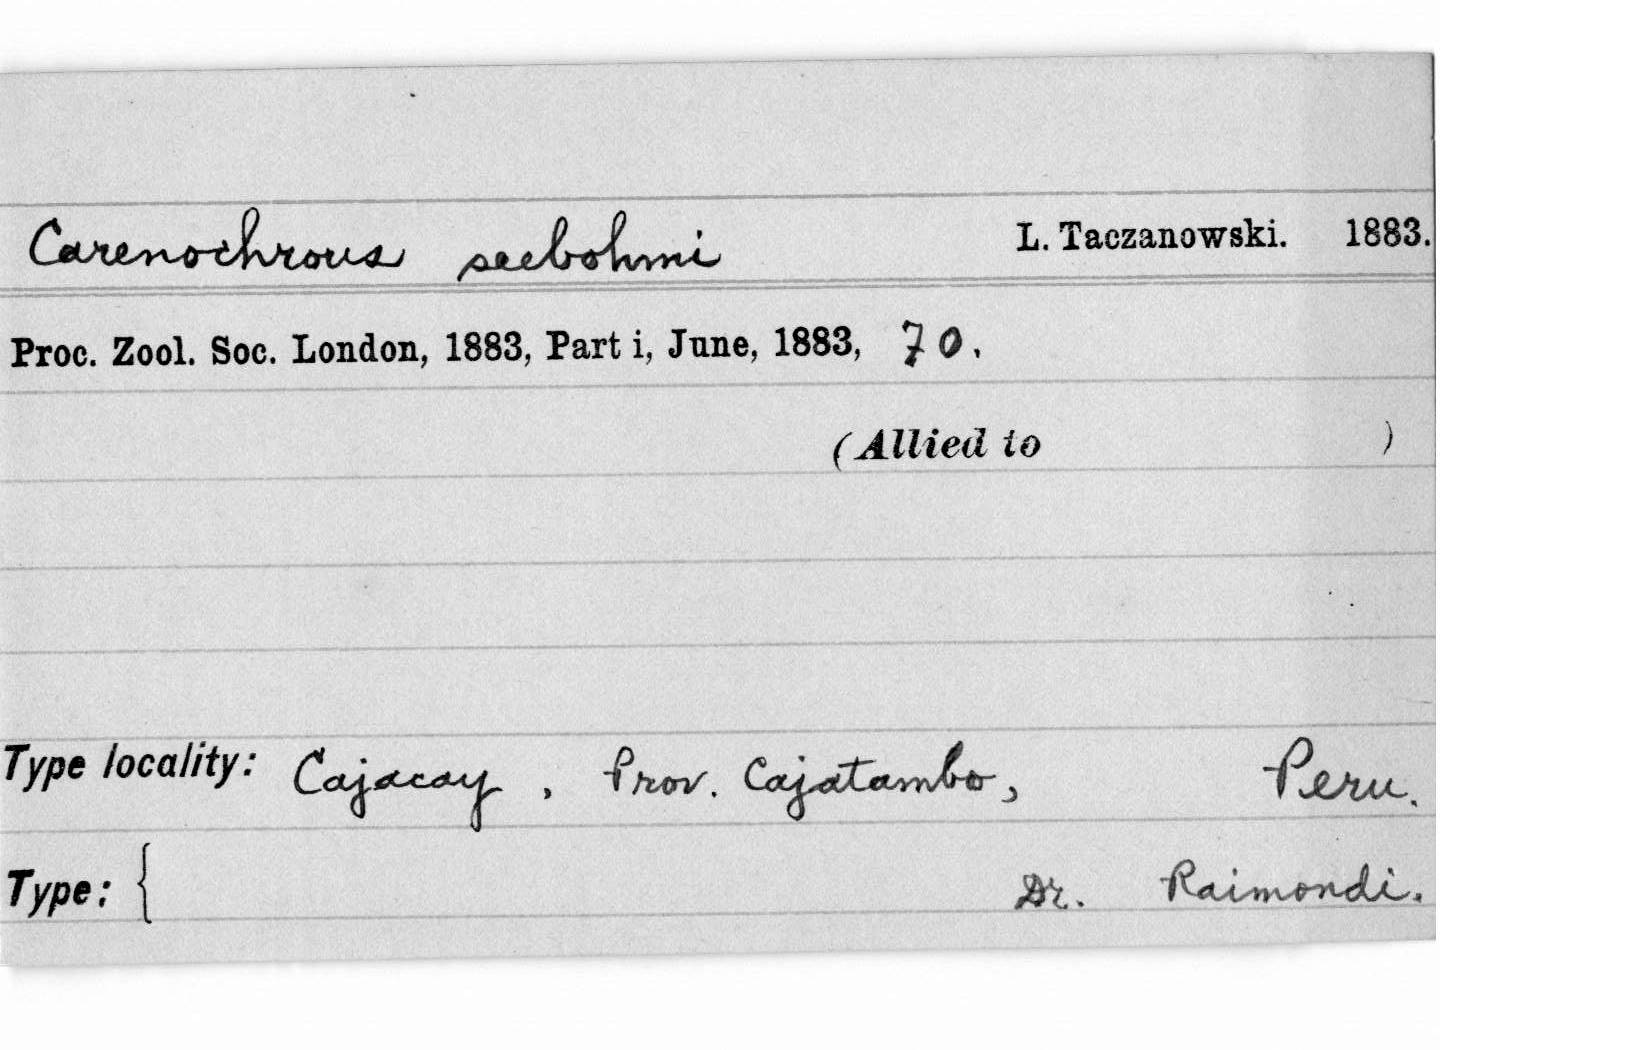 Carenochrous seebohmi L. Taczanowski. 1883.
Proc. Zool. Soc. London, 1883, Part i, June, 1883, 70.
(Allied to )
Type locality: Cajacay, Prov. Cajatambo, Peru.
Type: { Dr. Raimondi.